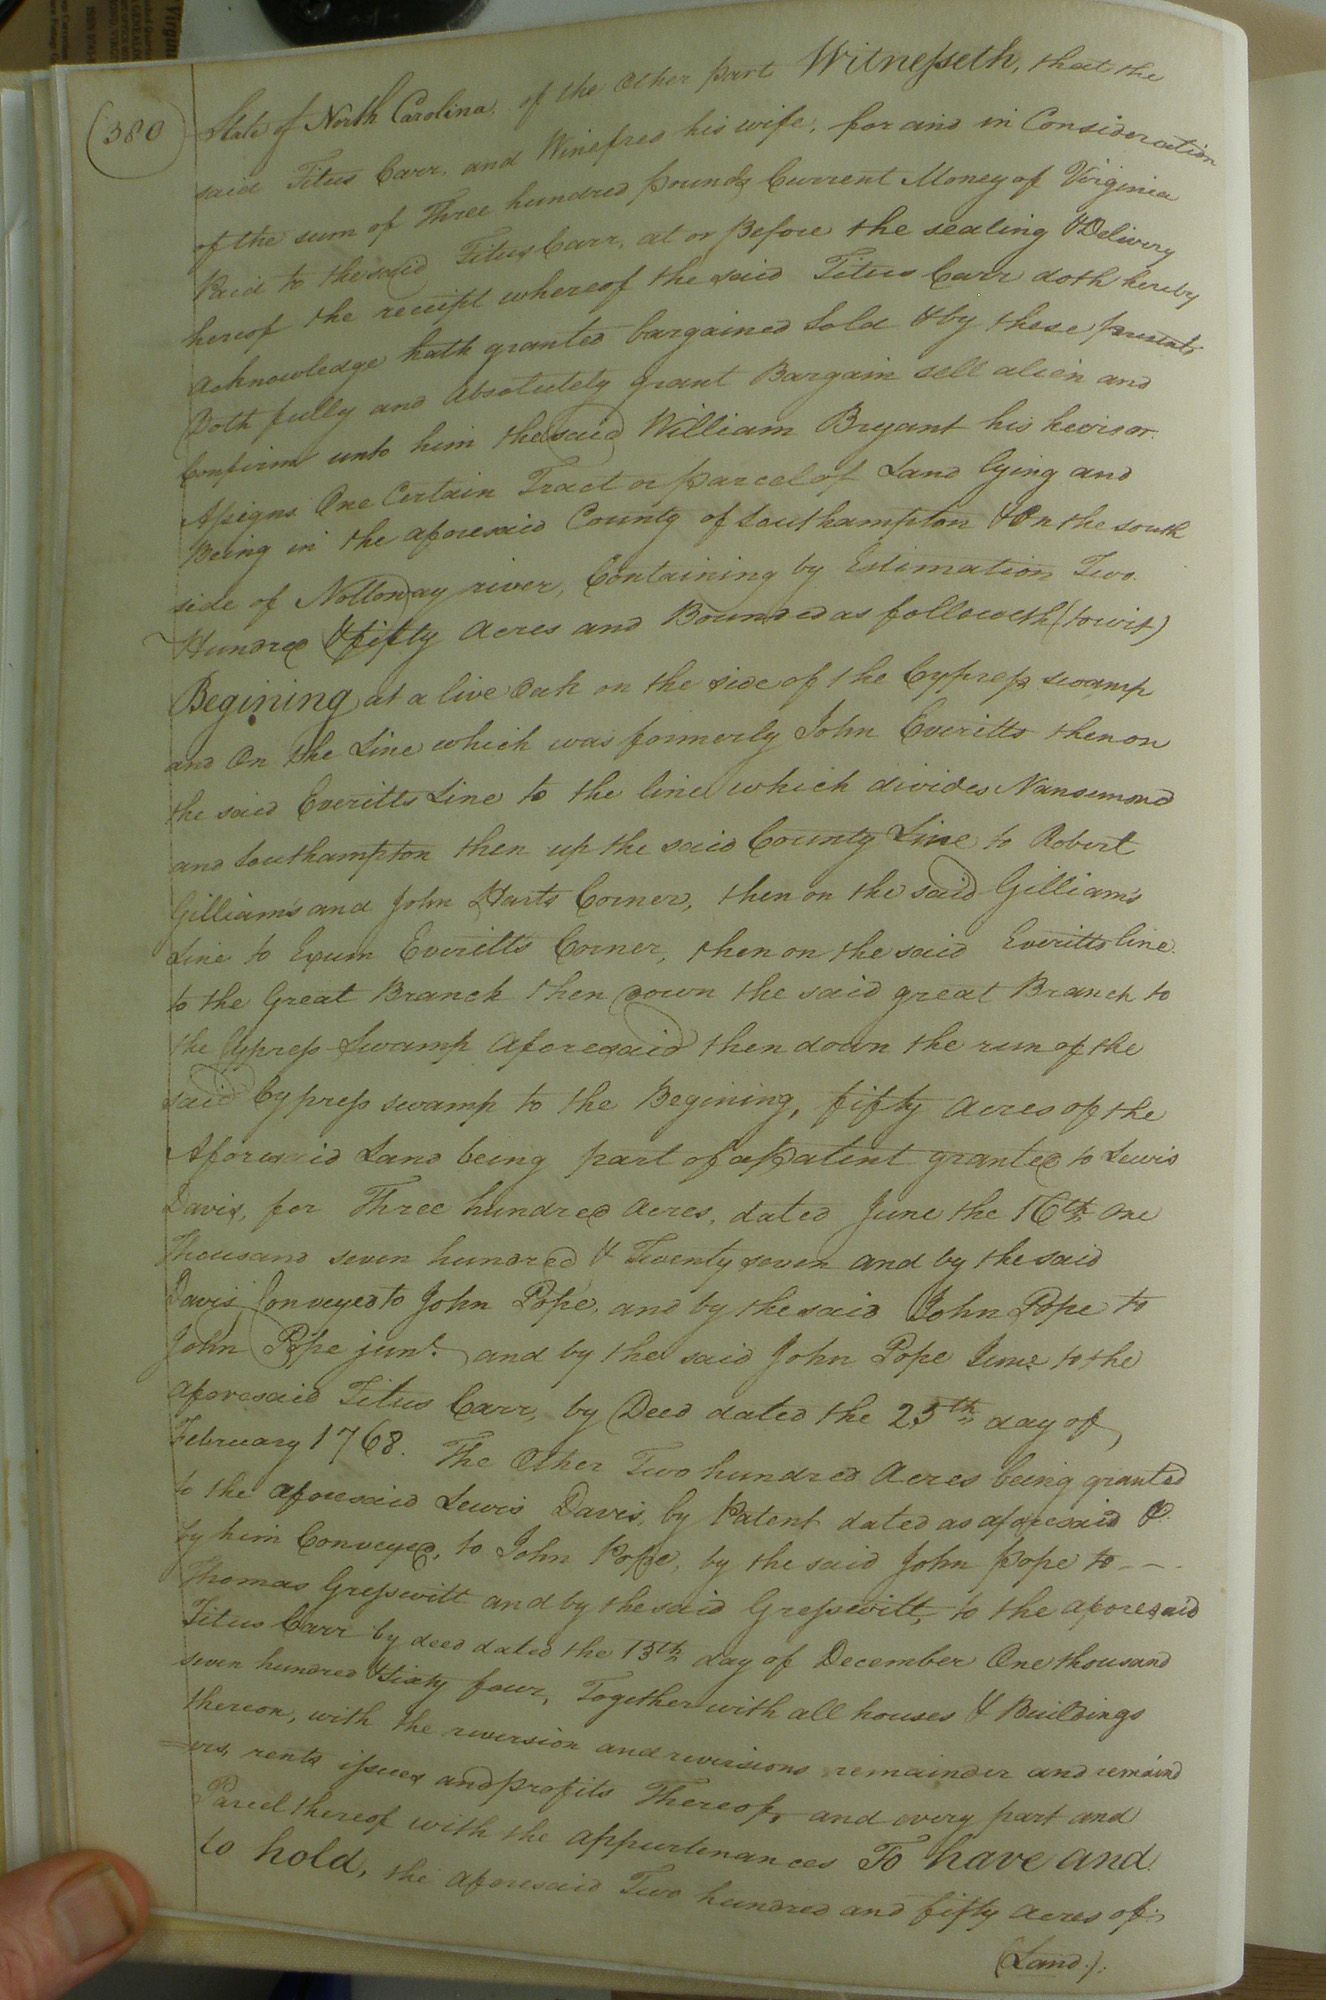 (380)
State of North Carolina, of the Other part Witnesseth, that the
said Titus Carr, and Winefred his wife, for and in Consideration
of the sum of Three hundred pounds Current Money of Virginia
Paid to the said Titus Carr, at or Before the sealing & Delivery
hereof the receipt whereof the said Titus Carr doth hereby
acknowledge hath granted bargained Sold & by these presents
Doth fully and absolutely grant Bargain sell alien and
Confirm unto him the said William Bryant his heirs or
Assigns One Certain Tract or parcel of Land lying and
Being in the aforesaid County of Southampton & On the south
side of Nottoway river, Containing by Estimation Two
Hundred & fifty Acres and Bounded as followeth (towit)
Begining at a live Oak on the side of the Cypress swamp
and On the Line which was formerly John Everitts then on
the said Everitts Line to the line which divides Nansemond
and Southampton then up the said County Line to Robert
Gilliam's and John Harts Corner, then on the said Gilliam's
Line to Exum Everitt's Corner, then on the said Everitts line
to the Great Branch then down the said great Branch to
the Cypress Swamp aforesaid then down the run of the
said Cypress swamp to the Begining, fifty acres of the
Aforesaid Land being part of a Patent granted to Lewis
Davis, for Three hundred acres, dated June the 16th One
Thousand seven hundred & Twenty seven and by the said
Davis Conveyed to John Pope, and by the said John Pope to
John Pope junr. and by the said John Pope Junr to the
aforesaid Titus Carr, by Deed dated the 25th day of
February 1768. The Other Two hundred Acres being granted
to the aforesaid Lewis Davis, by Patent dated as aforesaid &
by him Conveyed, to John Pope, by the said John Pope to - - -
Thomas Gresswitt and by the said Gresswitt, to the aforesaid
Titus Carr by deed dated the 13th day of December One thousand
seven hundred & sixty four, Together with all houses & Buildings
thereon, with the reversion and reversions remainder and remaind
=ers, rents issues and profits Thereof, and every part and
Parcel thereof with the appurtenances To have and
to hold, the aforesaid Two hundred and fifty acres of
(Land.)